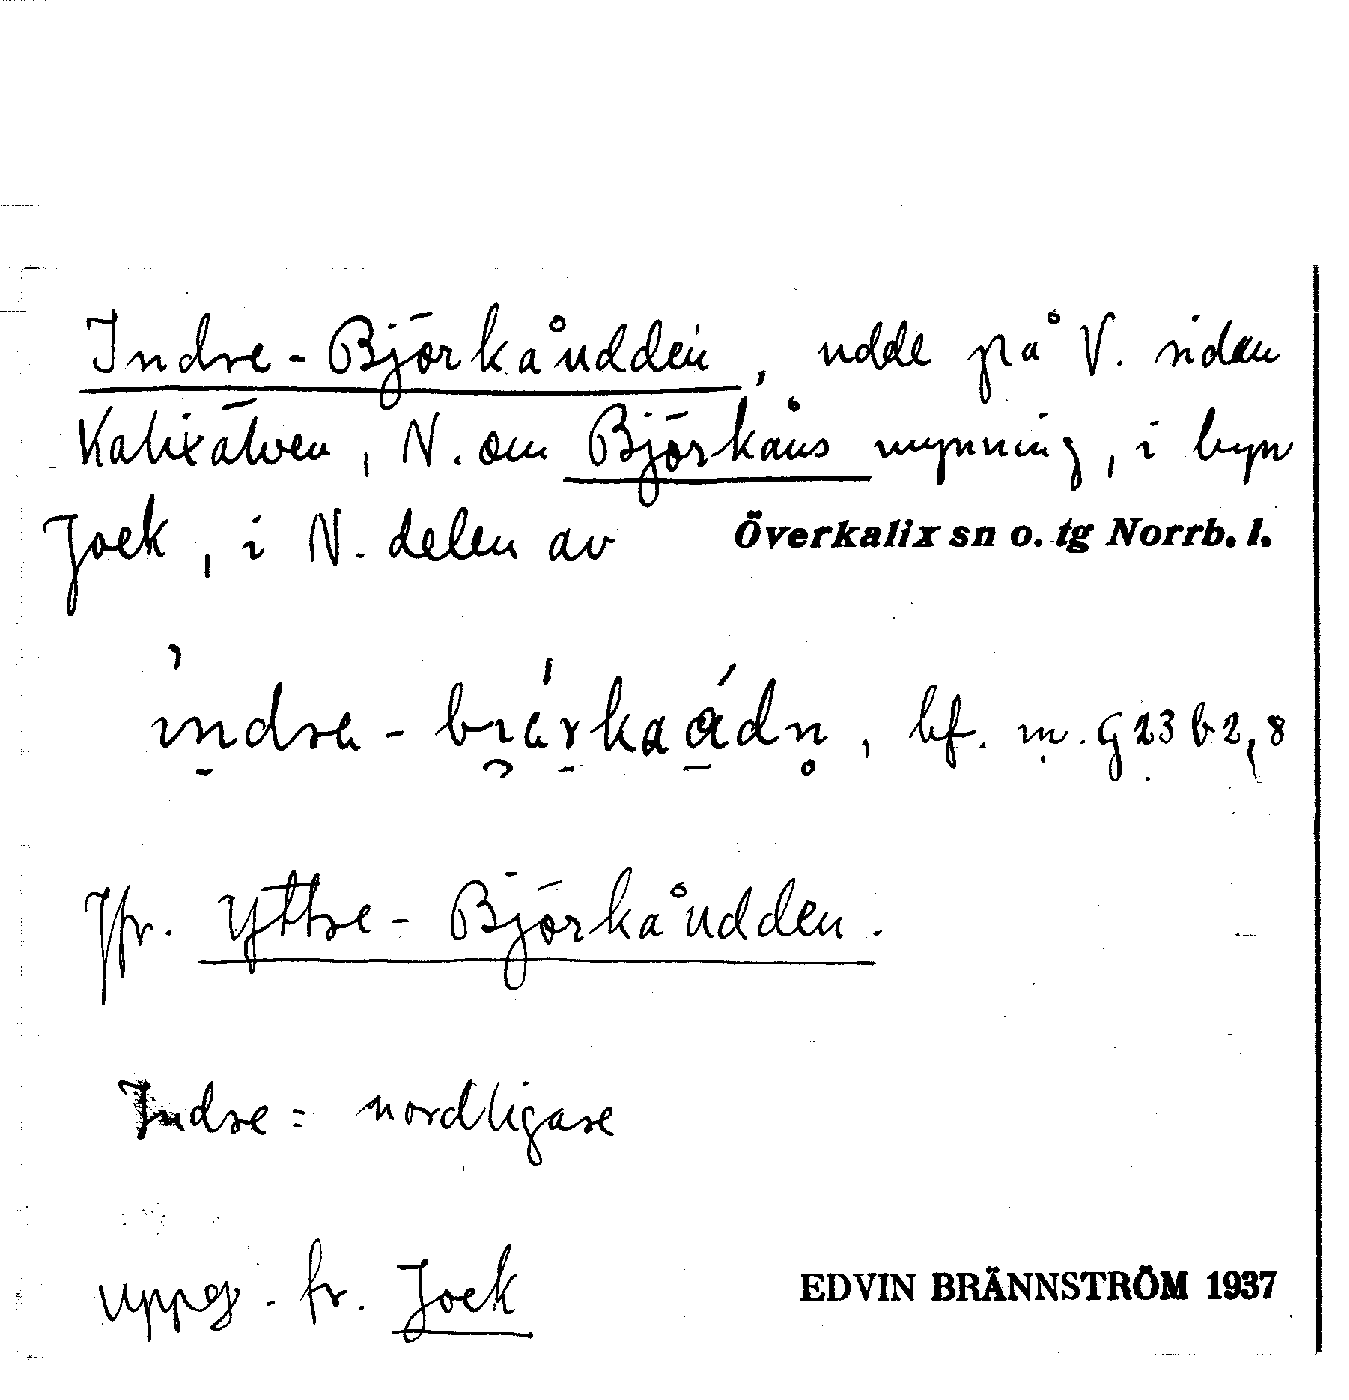 Indre-Björkåudden, udde på V. sidan
Kalixälven, N. om Björkåns mynning, i byn
Jock, i N. delen av Överkalix sn o. tg Norrb. l.
bf. m.
Jfr. Yttre-Björkåudden.
Indre = nordligare
Uppg. fr. Jock
EDVIN BRÄNNSTRÖM 1937